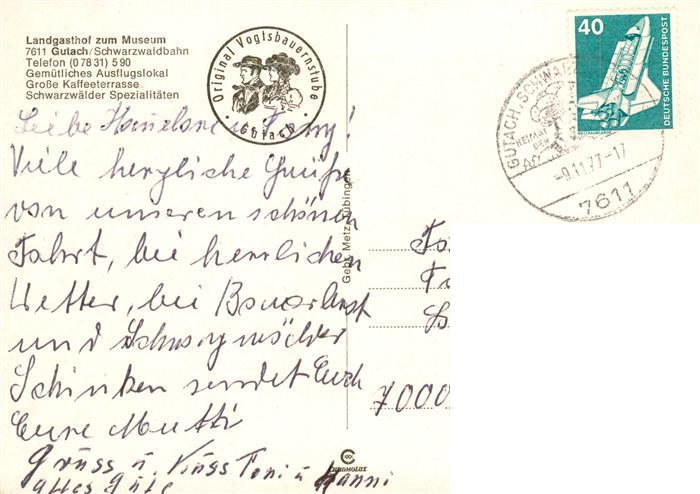 Landgasthof zum Museum
7611 Gutach/Schwarzwaldbahn
Telefon (0 78 31) 5 90
Gemütliches Ausflugslokal
Große Kaffeeterrasse
Schwarzwälder Spezialitäten
Original Vogtsbauernstube
Gutach
40
DEUTSCHE BUNDESPOST
GUTACH SCHWA
HEIMAT
DES
-9.11.77-17
7611
Liebe u !
Viele herzliche Grüße
von unseren schönen
Fahrt, bei herrlichen
Wetter, bei
und
Schinken sendet Euch
Eure Mutti
Gruss u. Kuss Toni u Hanni
alles Gute
Gebr. Metz, Tübingen
7000
CHROMOLUX